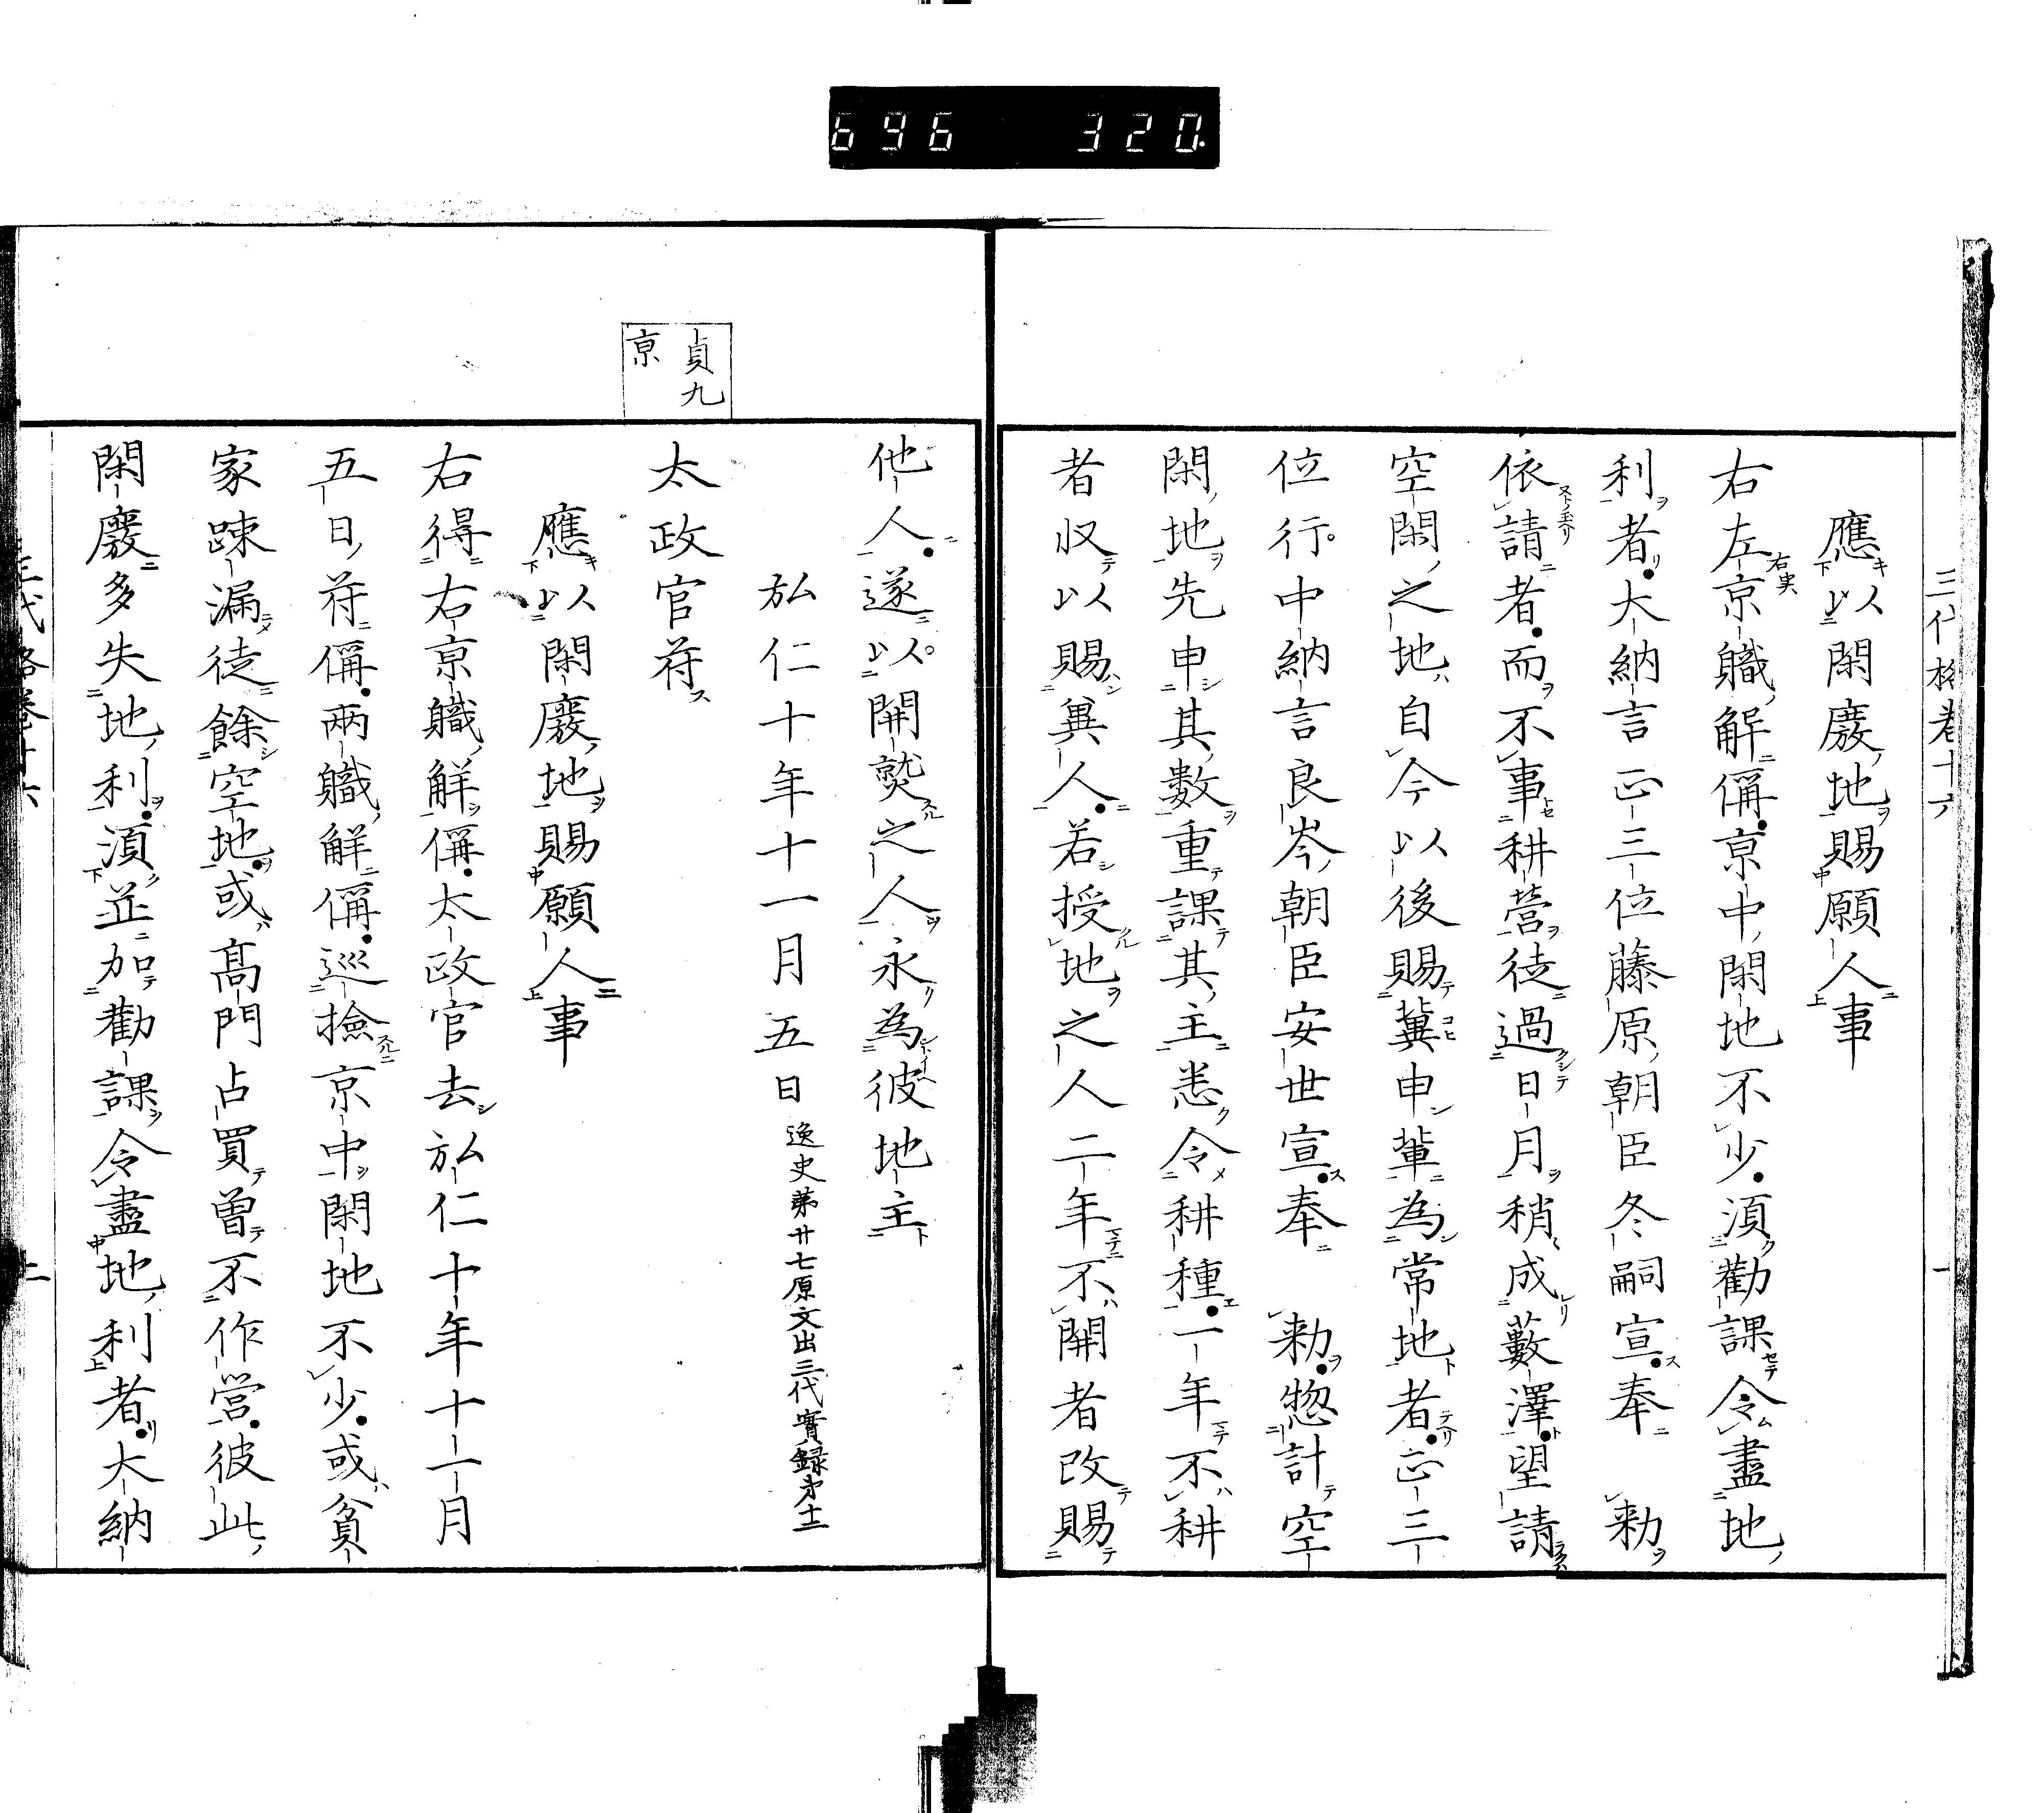 696 320.
三代格卷十六 一
應以閑廢地賜願人事
右左京職解偁京中閑地不少須勸課令盡地
右史
利者大納言正三位藤原朝臣冬嗣宣奉 勅
依請者而不事耕營徒過日月稍成藪澤望請
空閑之地自今以後賜冀申輩為常地者正三
位行中納言良岑朝臣安世宣奉 勅惣計空
閑地先申其數重課其主悉令耕種一年不耕
者収以賜異人若授地之人二年不開者改賜
他人遂以開熒之人永為彼地主
弘仁十年十一月五日 逸史第廿七原文出三代實録第士
貞九
京
太政官符
應以閑廢地賜願人事
右得右京職解偁太政官去弘仁十年十一月
五日符偁兩職解偁巡撿京中閑地不少或貧
家踈漏徒餘空地或高門占買曾不作営彼此
閑廢多失地利湏並加勸課令盡地利者大納
三代格卷十六 二